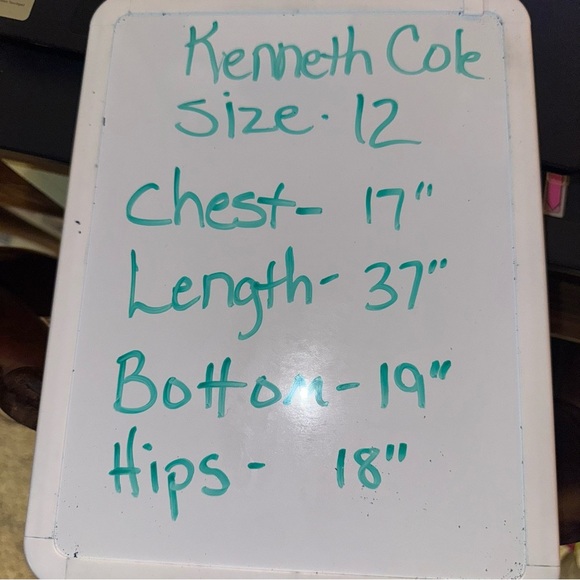 Kenneth Cole
Size. 12
Chest- 17"
Length- 37"
Bottom- 19"
Hips- 18"